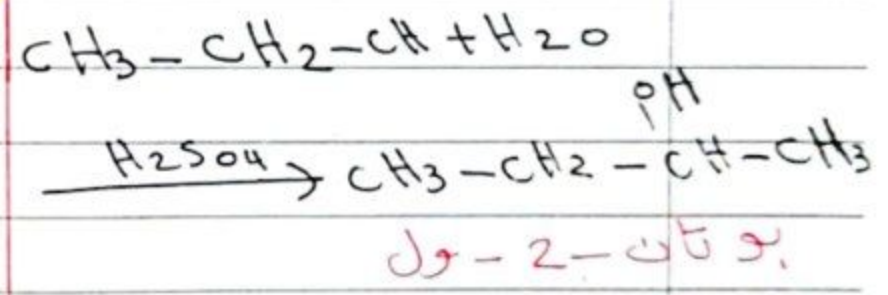 CH3-CH2-CH+H2O
OH
H2SO4 → CH3-CH2-CH-CH3
بوتان-2-ول